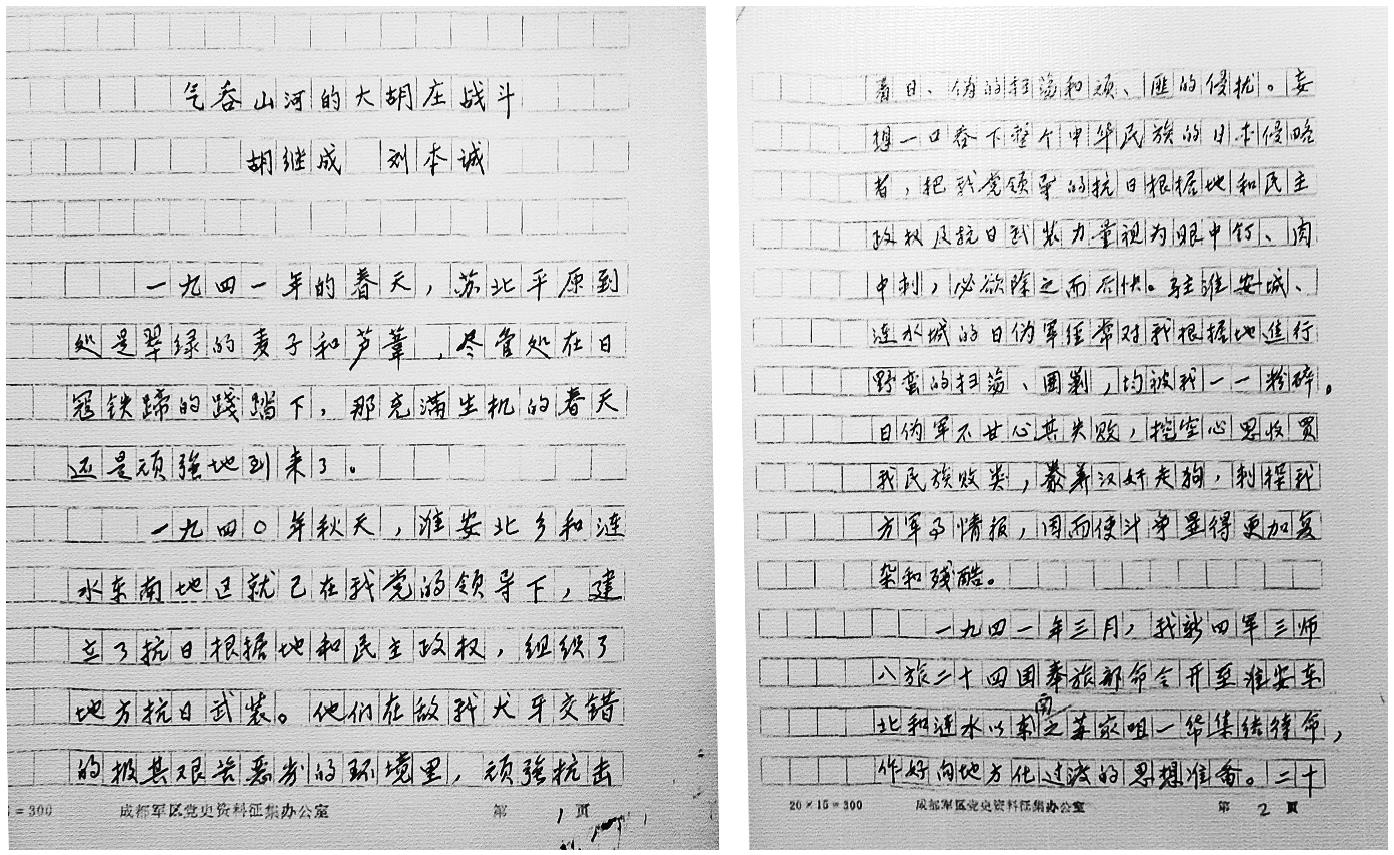 气吞山河的大胡庄战斗
胡继成 刘本诚
一九四一年的春天，苏北平原到
处是翠绿的麦子和芦苇，尽管处在日
寇铁蹄的践踏下，那充满生机的春天
还是顽强地到来了。
一九四〇年秋天，淮安北乡和涟
水东南地区就已在我党的领导下，建
立了抗日根据地和民主政权，组织了
地方抗日武装。他们在敌我犬牙交错
的极其艰苦恶劣的环境里，顽强抗击
=300 成都军区党史资料征集办公室 第1页
着日、伪的扫荡和顽、匪的侵扰。妄
想一口吞下整个中华民族的日本侵略
者，把我党领导的抗日根据地和民主
政权及抗日武装力量视为眼中钉、肉
中刺，必欲除之而后快。驻淮安城、
涟水城的日伪军经常对我根据地进行
野蛮的扫荡、围剿，均被我一一粉碎。
日伪军不甘心其失败，挖空心思收买
我民族败类，豢养汉奸走狗，刺探我
方军事情报，因而使斗争显得更加复
杂和残酷。
一九四一年三月，我新四军三师
八旅二十四团奉旅部命令开至淮安东
北和涟水以东南之苏家咀一带集结待命，
作好向地方化过渡的思想准备。二十
20×15=300 成都军区党史资料征集办公室 第2页